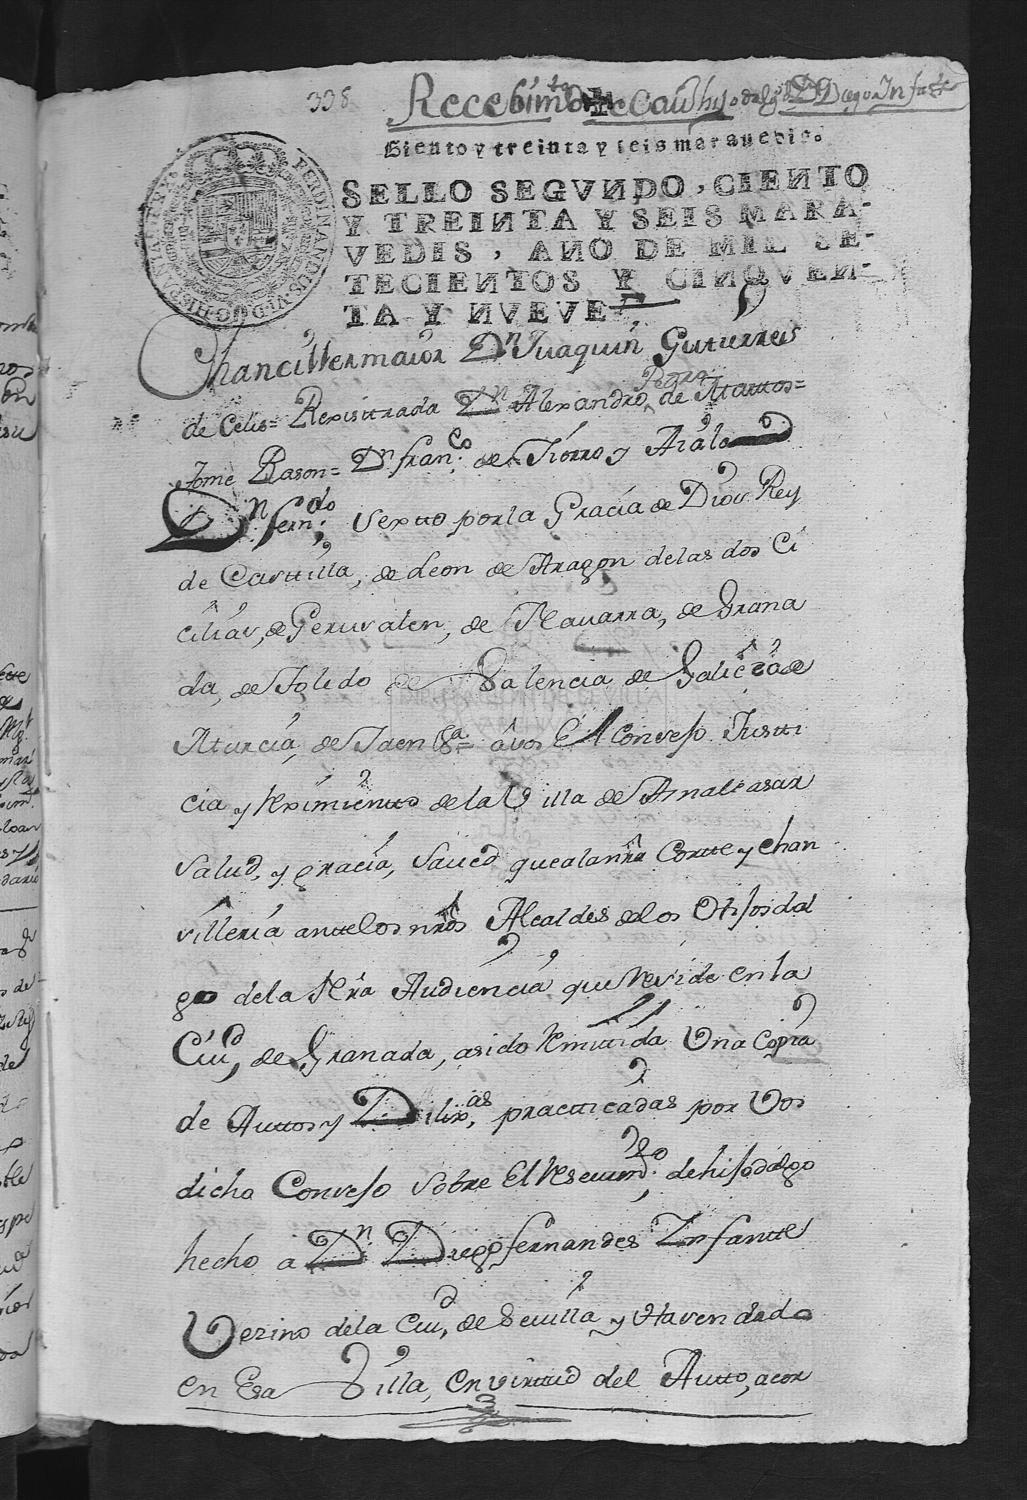 338
Recebimto de Cavhijodalgo Dn Diego Infte
Siento y treinta y seis maravedis.
SELLO SEGVNDO, CIENTO
Y TREINTA Y SEIS MARA-
VEDIS, AÑO DE MIL SE-
TECIENTOS Y CINQVEN-
TA Y NVEVE.
FERDINANDUS VI D G HISPANIAR REX
Chanciller maior Dn Juaquin Guturres
de Celis= Rexistrada Dn Alexandro Pedro de Mattos=
Tome Rason= Dn franco de Fierro y Aiala
Dn ferndo Sextto por la Gracia de Dios Rey
de Casttilla, de Leon de Aragon de las dos Ci
cilias, de Gerusalen, de Navarra, de Grana
da, de Toledo de Valencia de Galicia de
Murcia, de Jaen &a= a vos El Consejo Justti
cia y Reximientto de la Villa de Amalcasar
Salud, y gracia, Saved que a la nra Cortte y chan
villeria antte los nros Alcaldes de los Hijosdal
go de la Nra Audiencia que Reside en la
Ciud, de Granada, a sido Remittida Una Copia
de Auttos y Dilixas, practticadas por Vos
dicho Consejo sobre El Resevimdo de hijodalgo
hecho a Dn Diego fernandes Infantte
Vezino de la Ciud, de Sevilla y Hasendado
en Esa Villa, en virttud del Autto, acor